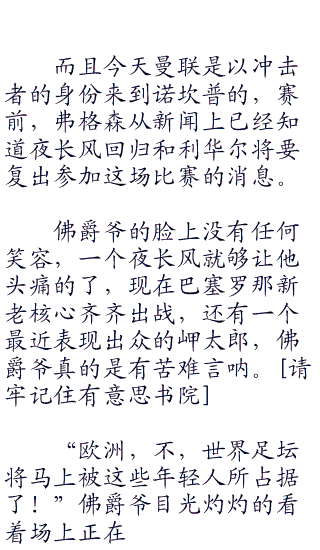 而且今天曼联是以冲击
者的身份来到诺坎普的，赛
前，弗格森从新闻上已经知
道夜长风回归和利华尔将要
复出参加这场比赛的消息。
佛爵爷的脸上没有任何
笑容，一个夜长风就够让他
头痛的了，现在巴塞罗那新
老核心齐齐出战，还有一个
最近表现出众的岬太郎，佛
爵爷真的是有苦难言呐。[请
牢记住有意思书院]
“欧洲，不，世界足坛
将马上被这些年轻人所占据
了！”佛爵爷目光灼灼的看
着场上正在